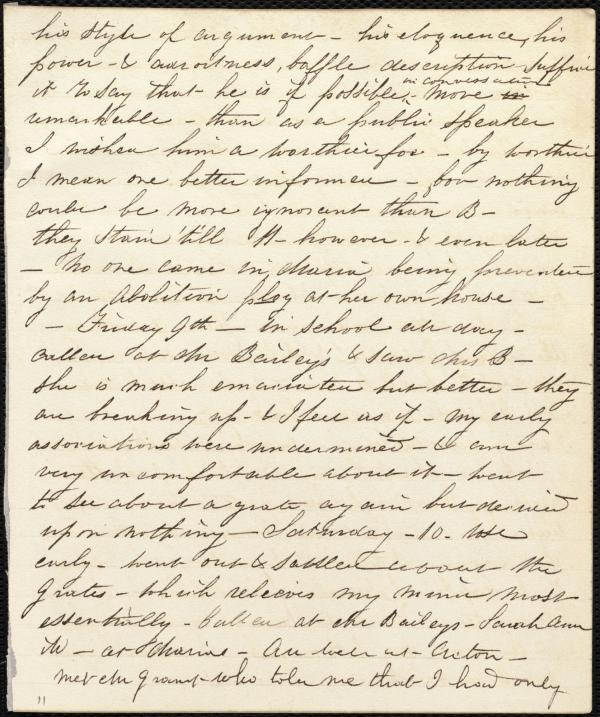 his style of argument - his eloquence, his
power - & adroitness, baffle description suffice
it to say that - he is if possible, - more in
in conversation
remarkable - than as a public speaker
I wished him a worthier foe - by worthier
I mean one better informed - for nothing
could be more ignorant than B -
they staid 'till 11 - however - & even later
- No one came in, Maria being prevented
by an Abolition play at her own house -
- Friday 9th - in school all day -
called at Mr Bailey's & saw Mrs B -
she is much emaciated but better - they
are breaking up - & I feel as if - my early
associations were undermined - & am
very uncomfortable about it - went
to see about a grate again but decided
upon nothing - Saturday - 10 -
early - went out & settled about the
grates - which relieves my mind most
essentially - Called at Mr Baileys - Sarah Ann
W - at Maria's - All well at Acton -
met Mr Grant - who told me that I had only
11